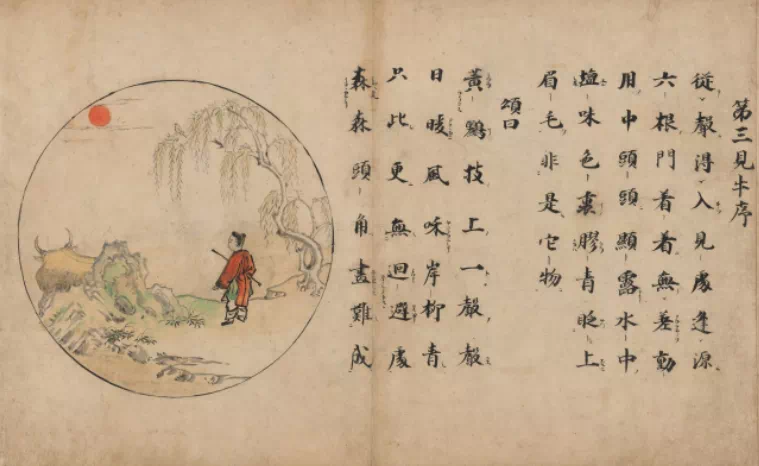 第三見牛序
從聲得入見處逢源
六根門着着無差動
用中頭頭顯露水中
塩味色裏膠青眨上
眉毛非是它物
頌曰
黃鸝枝上一聲聲
日暖風和岸柳青
只此更無迴避處
森森頭角畫難成